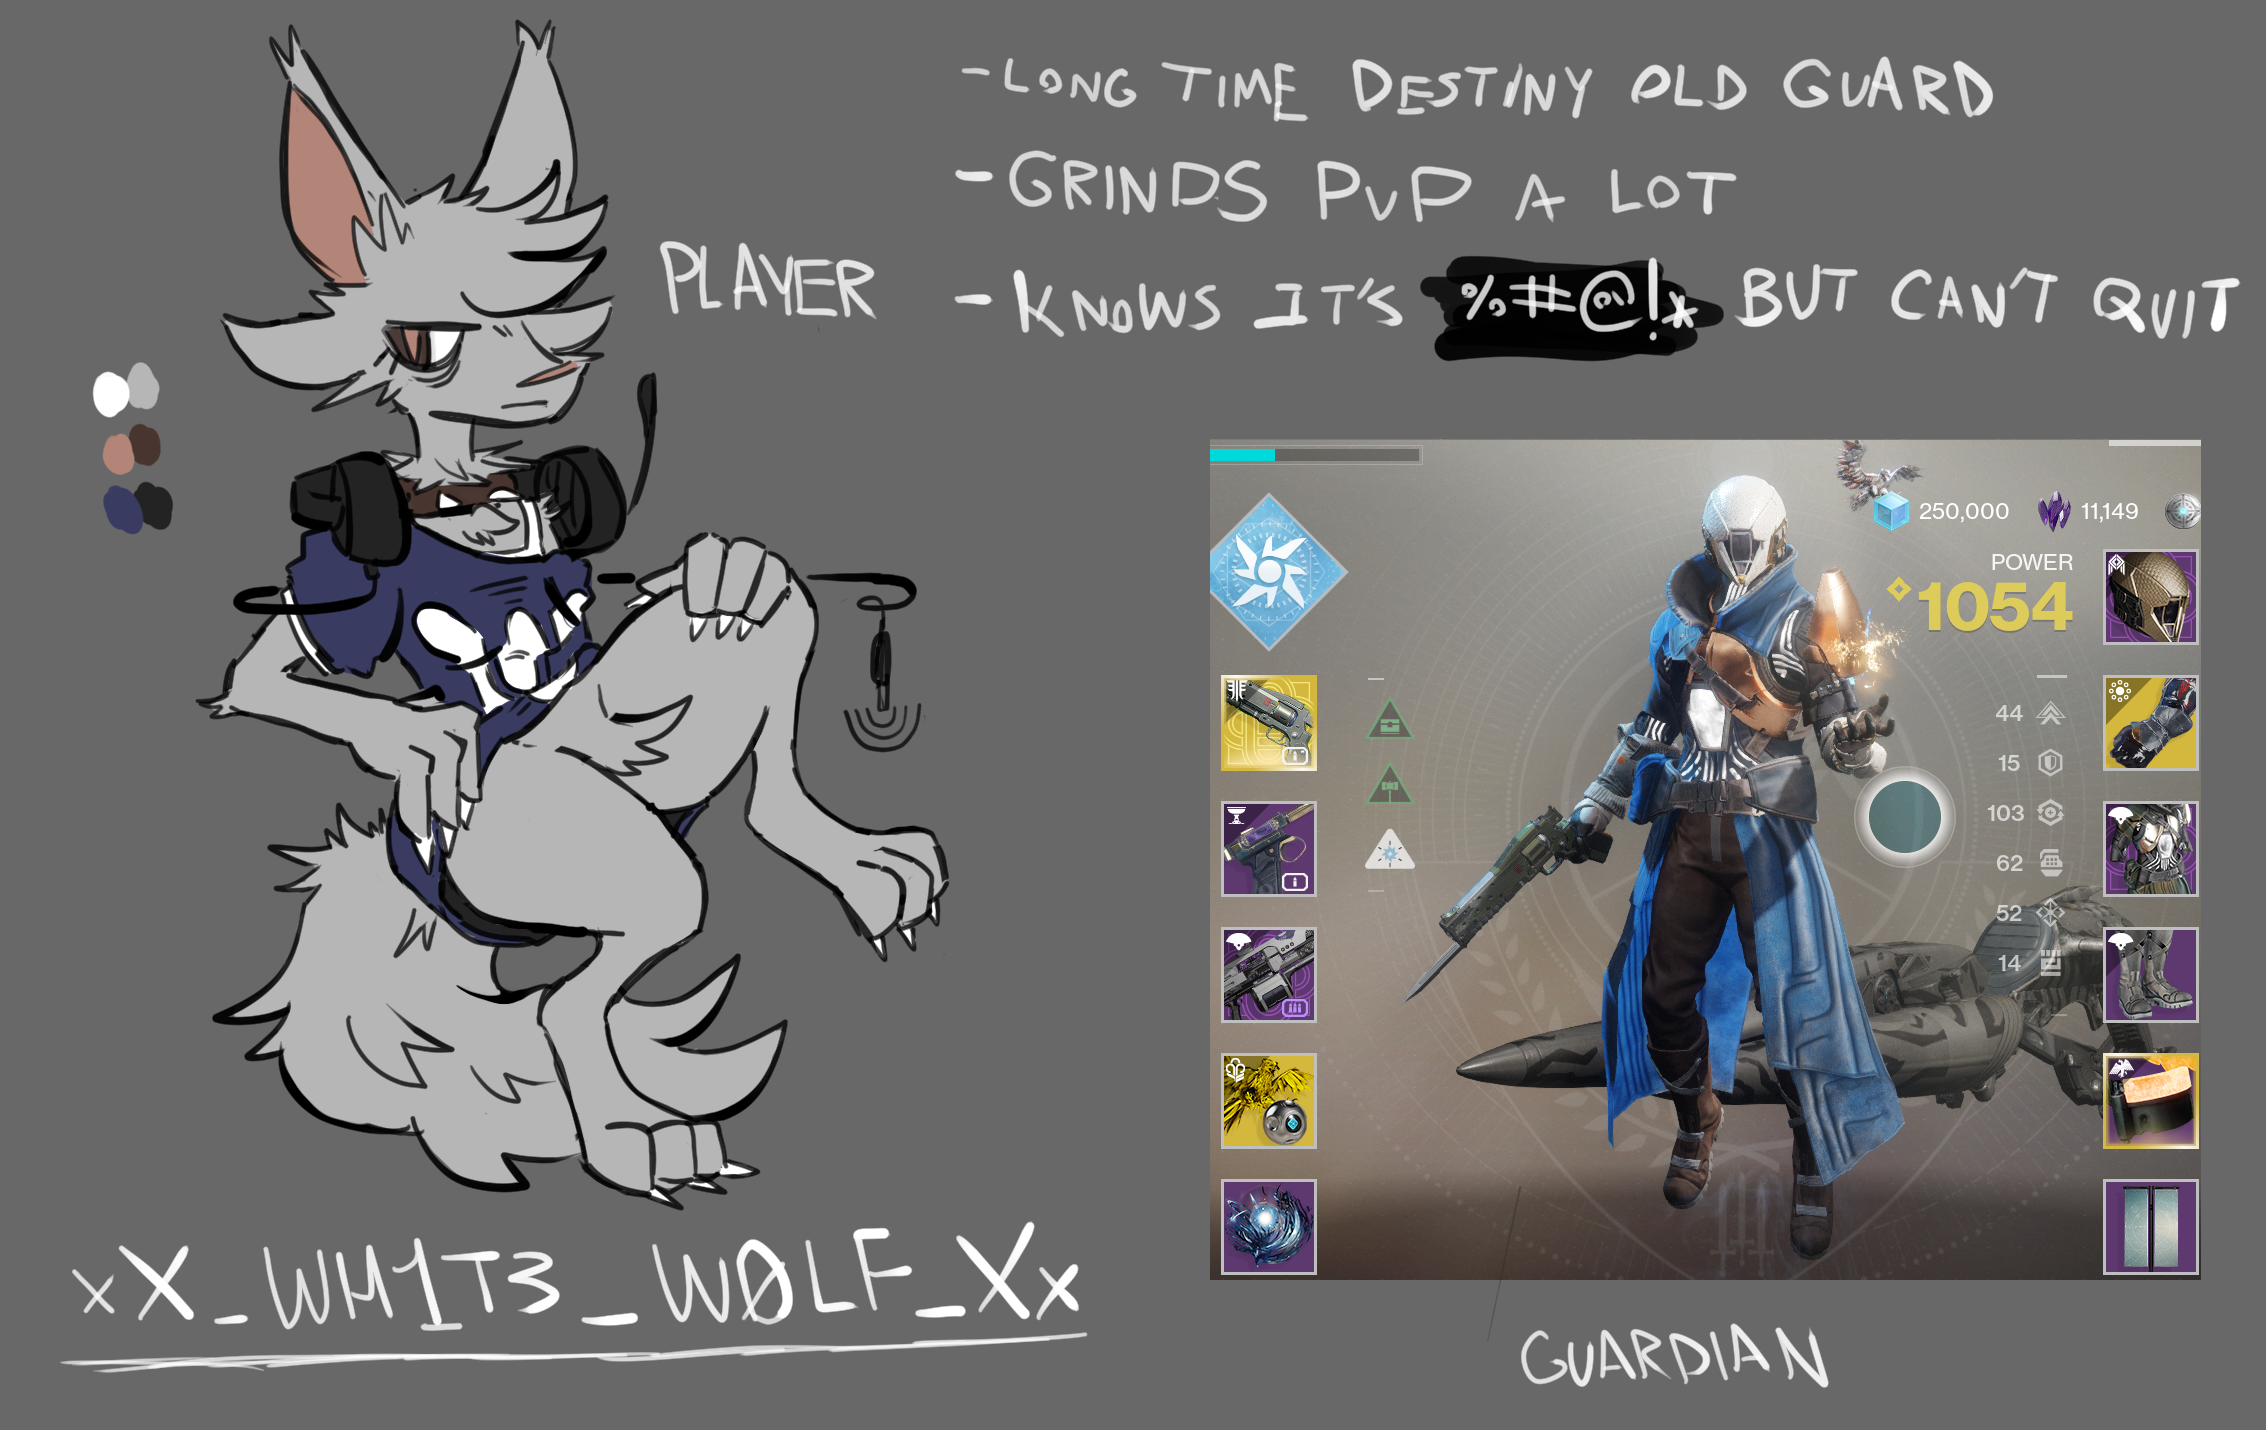 -LONG TIME DESTINY OLD GUARD
-GRINDS PvP A LOT
PLAYER
-KNOWS IT'S %#@!* BUT CAN'T QUIT
250,000 11,149
POWER
1054
44
15
103
62
52
14
xX_WH1T3_W0LF_Xx
GUARDIAN